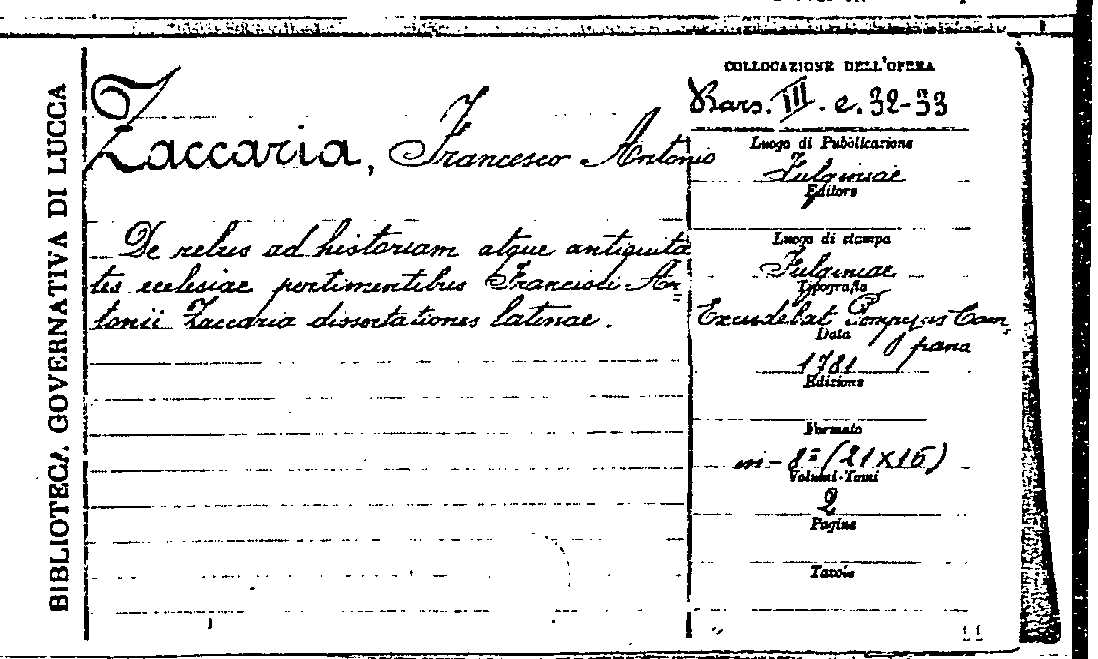 BIBLIOTECA GOVERNATIVA DI LUCCA
Zaccaria, Francesco Antonio
De rebus ad historiam atque antiquita
tes ecclesiae pertinentibus Francisci An=
tonii Zaccaria dissertationes latinae.
COLLOCAZIONE DELL'OPERA
III. e. 32-33
Luogo di Pubblicazione
Fulginiae
Editore
Luogo di stampa
Fulginiae
Tipografia
Excudebat Pompejus Cam=
pana
Data
1781
Edizione
Formato
in-8º (21x15)
Volumi-Tomi
2
Pagine
Tavole
11